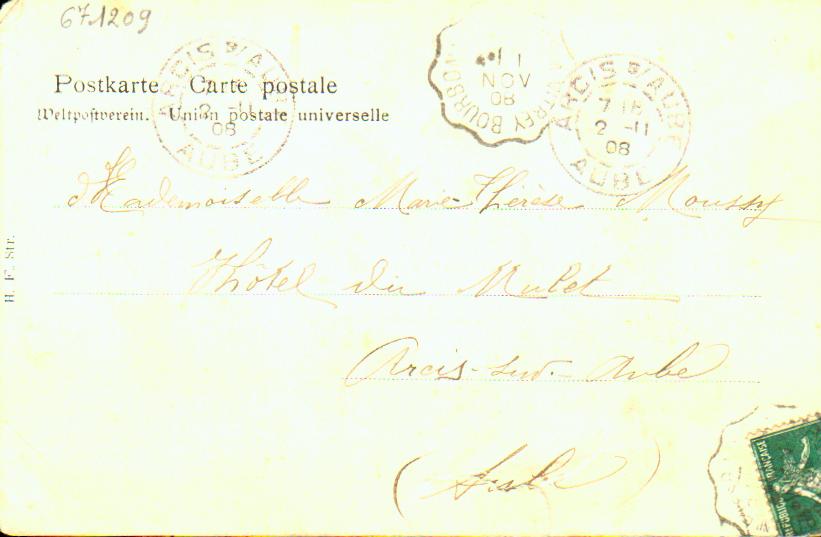 671209
Postkarte Carte postale
Weltpostverein. Union postale universelle
ARCIS S/AUBE
2 -11
08
AUBE
11
NOV
08
VITREY BOURBONNE
ARCIS S/AUBE
7 18
2 -11
08
AUBE
Mademoiselle Marie-Thérèse Moussy
Hôtel du Mulet
Arcis-sur-Aube
(Aube)
H. F. Str.
FRANÇAISE